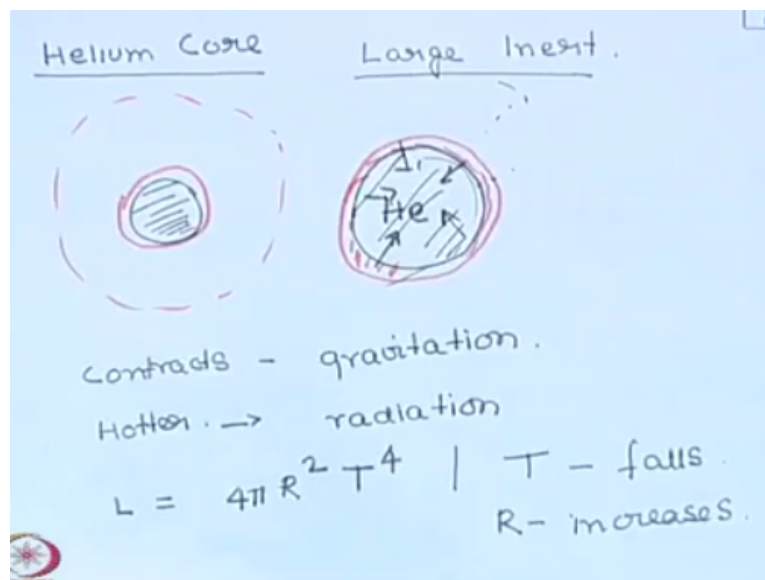 Helium Core
Large Inert.
He
Contracts - gravitation.
Hotter. → radiation
L = 4π R² T⁴ | T - falls.
R - increases.